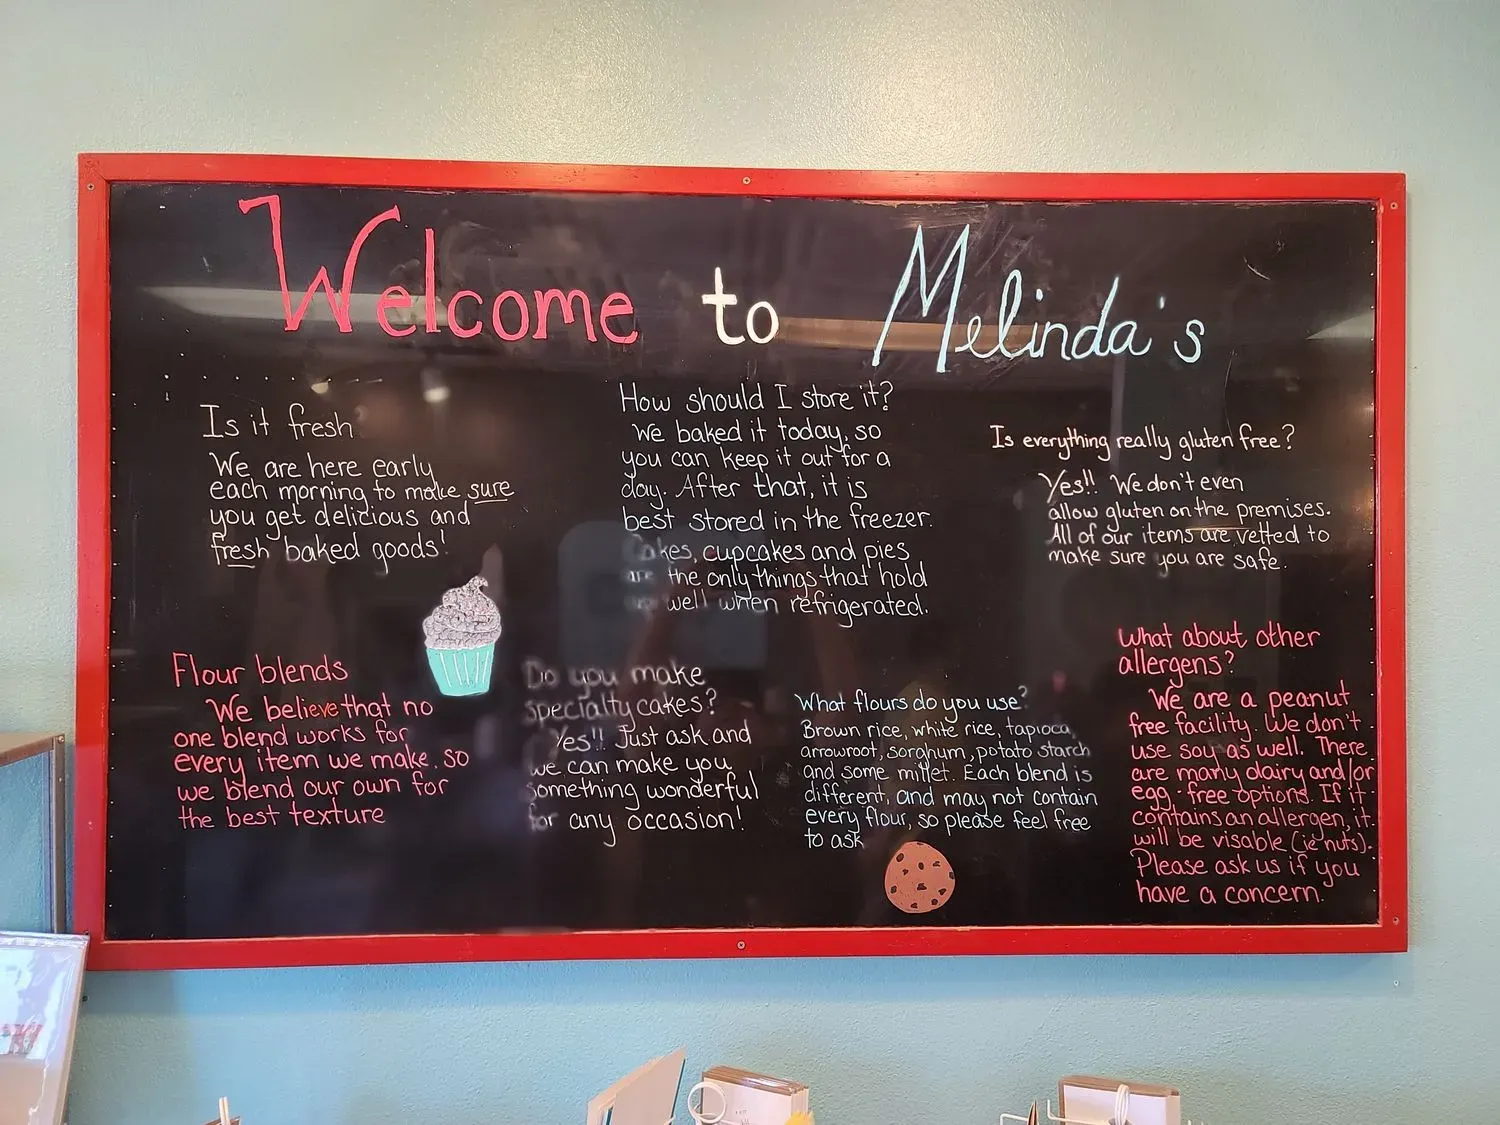 Welcome to Melinda's
Is it fresh
We are here early
each morning to make sure
you get delicious and
fresh baked goods!
How should I store it?
We baked it today, so
you can keep it out for a
day. After that, it is
best stored in the freezer.
Cakes, cupcakes and pies
are the only things that hold
well when refrigerated.
Is everything really gluten free?
Yes!! We don't even
allow gluten on the premises.
All of our items are vetted to
make sure you are safe.
Flour blends
We believe that no
one blend works for
every item we make. so
we blend our own for
the best texture
Do you make
specialty cakes?
Yes!! Just ask and
we can make you
something wonderful
for any occasion!
What flours do you use?
Brown rice, white rice, tapioca,
arrowroot, sorghum, potato starch
and some millet. Each blend is
different, and may not contain
every flour, so please feel free
to ask
What about other
allergens?
We are a peanut
free facility. We don't
use soy as well. There
are many dairy and/or
egg-free options. If it
contains an allergen, it
will be visable (ie nuts).
Please ask us if you
have a concern.